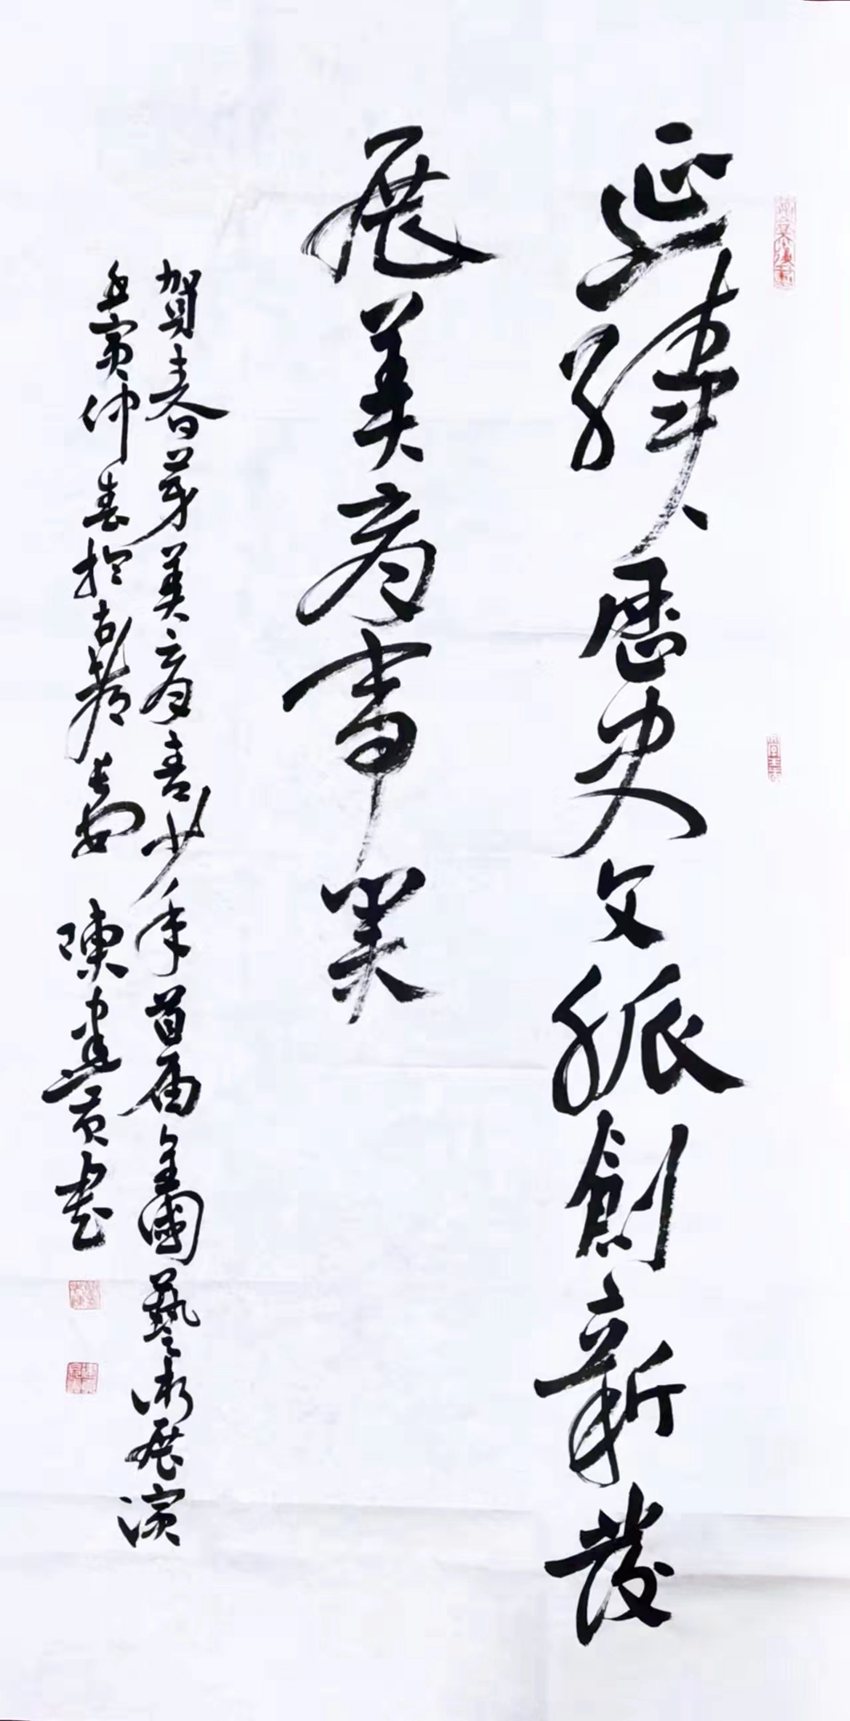 延續歷史文脈創新發
展美育事業
賀春芽美育青少年首屆全國藝術展演
壬寅仲春於古都長安 陳建貢書